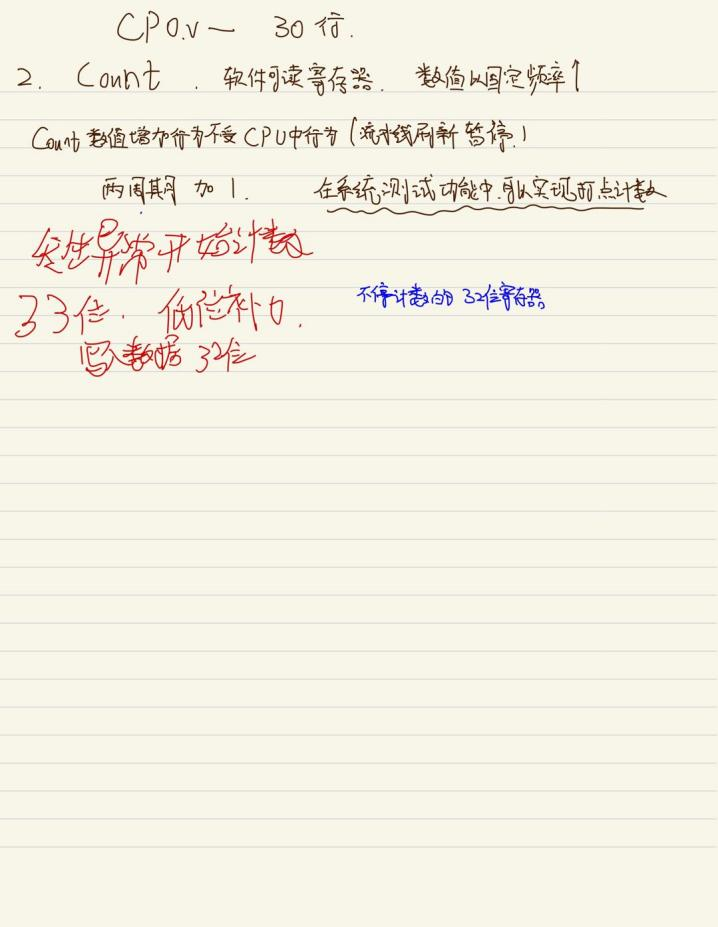 CP0.v — 30行.
2. Count . 软件可读寄存器. 数值以固定频率↑
Count 数值增加行为不受CPU中行为(流水线刷新 暂停.)
两周期 加 1. 在系统测试功能中.可以实现 计数
发生异常开始计数
33位. 低位补0.
不停计数的 32位寄存器
写入数据 32位